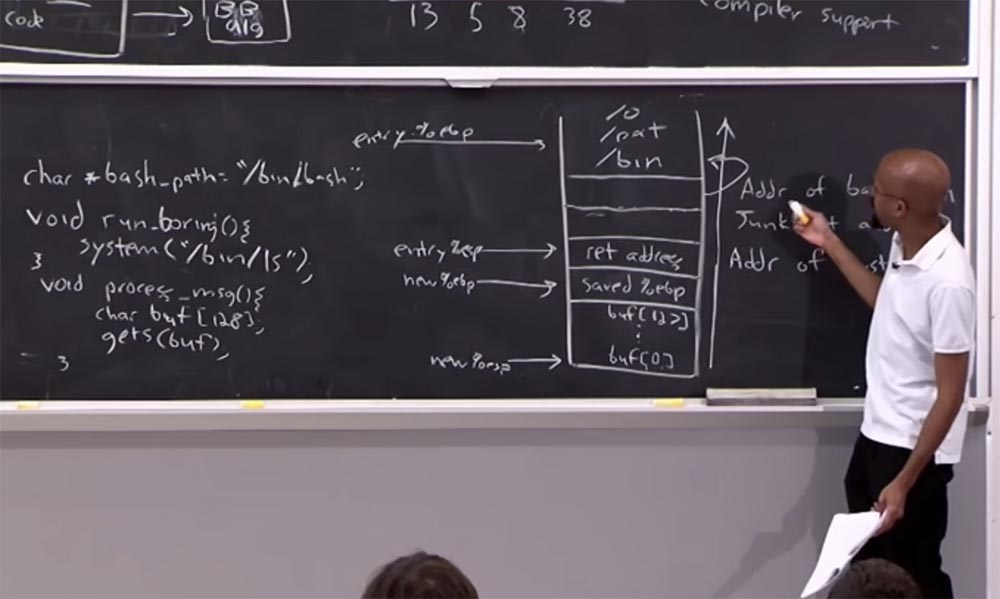 code
BB
alg
13 5 8 38
compiler support
char *bash_path= "/bin/bash";
void run_boring(){
system("/bin/ls");
}
void process_msg(){
char buf[128];
gets(buf);
}
entry %ebp
entry %esp
new %ebp
new %esp
/0
/pat
/bin
ret address
saved %ebp
buf[127]
buf[0]
Addr of
Junk
Addr of